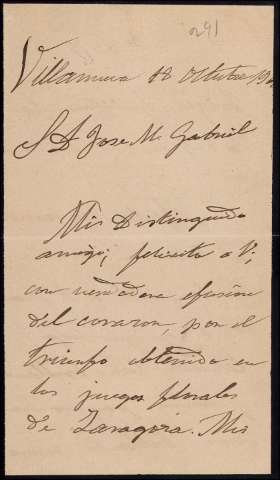 291
Villanueva 18 Octubre 190
S D Jose M. Gabriel
Mis Distinguido
amigo; felicito a V,
con verdadera efusion
del corazon, por el
triunfo obtenido en
los juegos florales
de Zaragoza. Mis